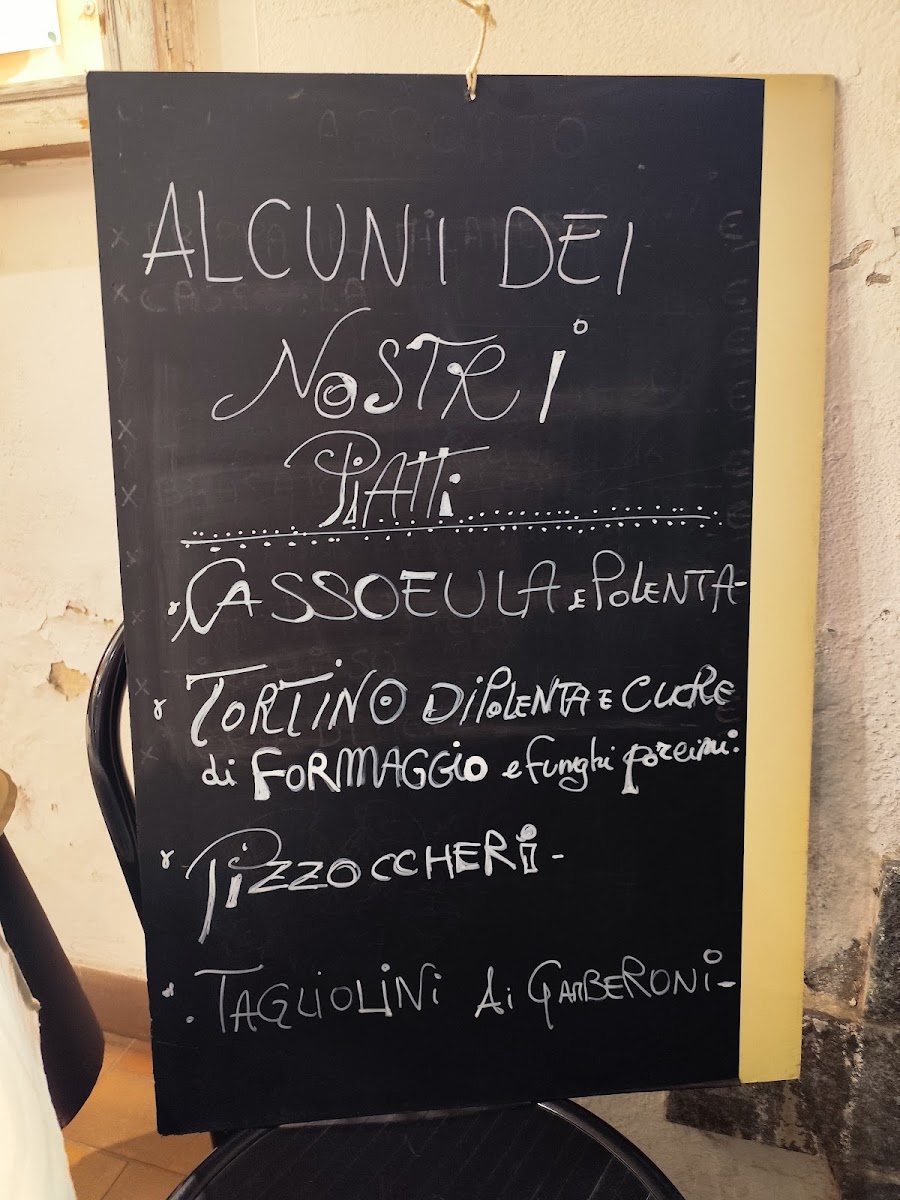 ALCUNI DEI
NOSTRI
PIATTI
CASSOEULA E POLENTA-
TORTINO DI POLENTA E CUORE
di FORMAGGIO e funghi porcini.
PIZZOCCHERI-
TAGLIOLINI Ai GAMBERONI-